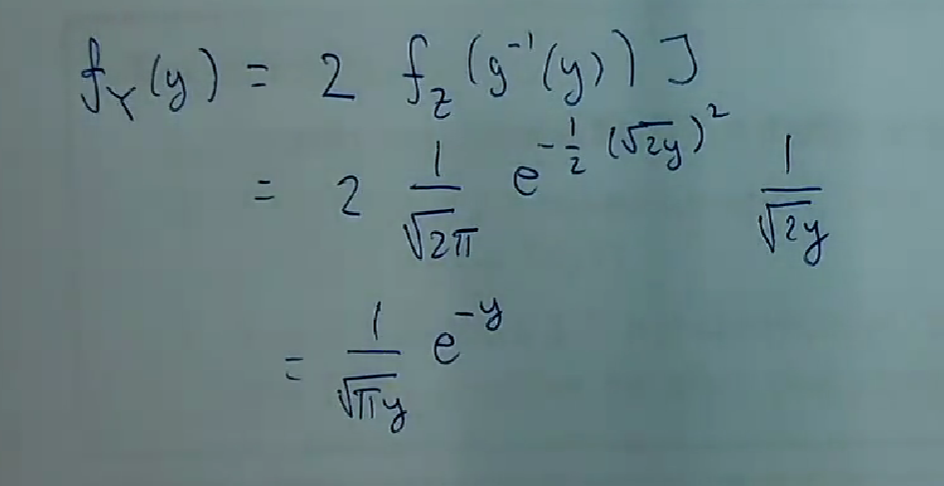 f_Y(y) = 2 f_Z(g^{-1}(y)) J
= 2 \frac{1}{\sqrt{2π}} e^{-\frac{1}{2}(\sqrt{2y})^2} \frac{1}{\sqrt{2y}}
= \frac{1}{\sqrt{πy}} e^{-y}